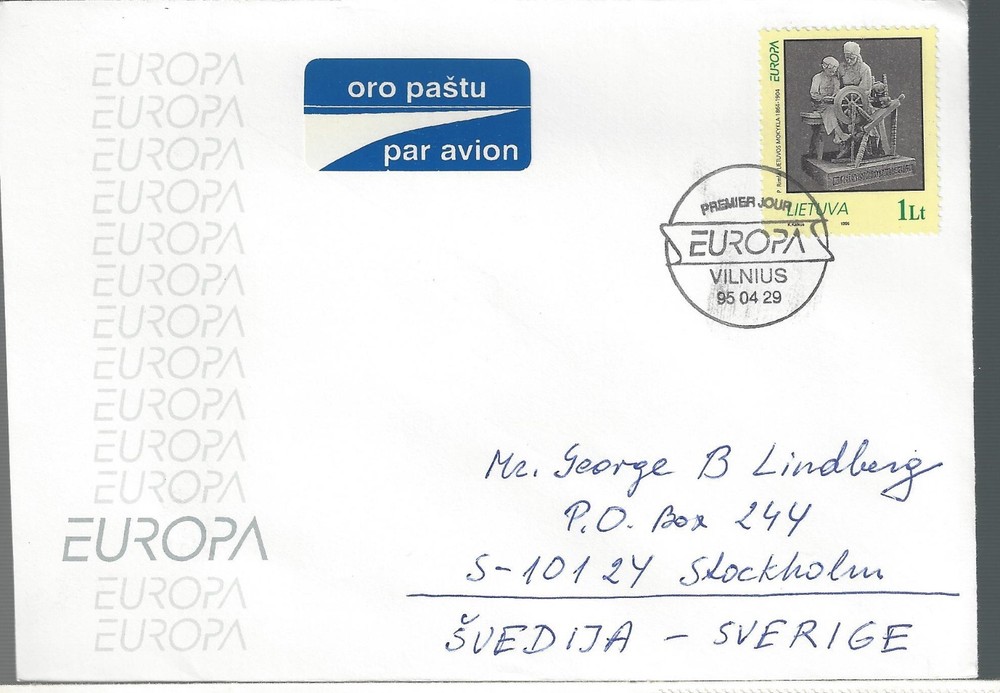 EUROPA
EUROPA
EUROPA
EUROPA
EUROPA
EUROPA
EUROPA
EUROPA
EUROPA
EUROPA
EUROPA
EUROPA
EUROPA
EUROPA
oro paštu
par avion
EUROPA
LIETUVOS MOKYKLA 1864-1904
LIETUVA
1Lt
PREMIER JOUR
EUROPA
VILNIUS
95 04 29
Mr. George B Lindberg
P.O. Box 244
S-101 24 Stockholm
ŠVEDIJA - SVERIGE